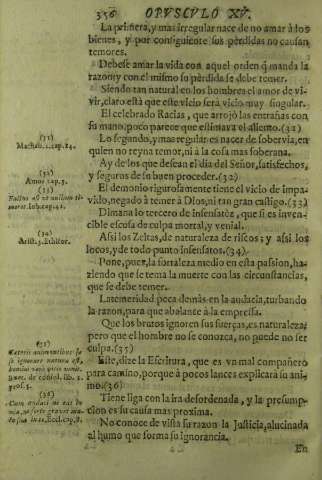 356 OPVSCVLO XV.
La primera, y mas irregular nace de no amar à los
bienes, y por consiguiente sus pèrdidas no causan
temores.
Debese amar la vida con aquel orden q̃ manda la
razon y con el mismo su pèrdida se debe temer.
Siendo tan natural en los hombres el amor de vi-
vir, claro està que este vicio serà vicio muy singular.
El celebrado Racias, que arrojò las entrañas con
su mano, poco parece que estimava el aliento. (31)
Lo segundo, y mas regular es nacer de sobervia, en
quien no reyna temor, ni à la cosa mas soberana.
Ay de los que desean el dia del Señor, satisfechos,
y seguros de su buen proceder. (32)
El demonio rigurosamente tiene el vicio de impa-
vido, negado à temer à Dios, ni tan gran castigo. (33)
Dimana lo tercero de insensatèz, que si es inven-
cible escusa de culpa mortal, y venial.
Assi los Zeltas, de naturaleza de riscos; y assi los
locos, y de todo punto insensatos. (34)
Pone, pues, la fortaleza medio en esta passion, ha-
ziendo que se tema la muerte con las circunstancias,
que se debe temer.
La temeridad peca demàs en la audacia, turbando
la razon, para que abalance à la empressa.
Que los brutos ignoren sus fuerças, es naturaleza;
pero que el hombre no se conozca, no puede no ser
culpa. (35)
Este, dize la Escritura, que es vn mal compañero
para camino, porque à pocos lances explicarà su ani-
mo. (36)
Tiene liga con la ira desordenada, y la presump-
cion es su causa mas proxima.
No conoce de vista su razon la Justicia, alucinada
al humo que forma su ignorancia.
En
(31)
Machab. 2. cap. 14.
(32)
Amos cap. 5.
(33)
Factus est ut nullum ti-
meret. Iob. cap. 41.
(34)
Arist. 3. Ethicor.
(35)
Cæteris animantibus se
se ignorare natura est,
homini vero vitio venit.
Boec. de consol. lib. 2.
pros. 5.
(36)
Cum audaci ne eas in
via, ne forte gravet ma-
la sua in te. Eccl. cap. 8.